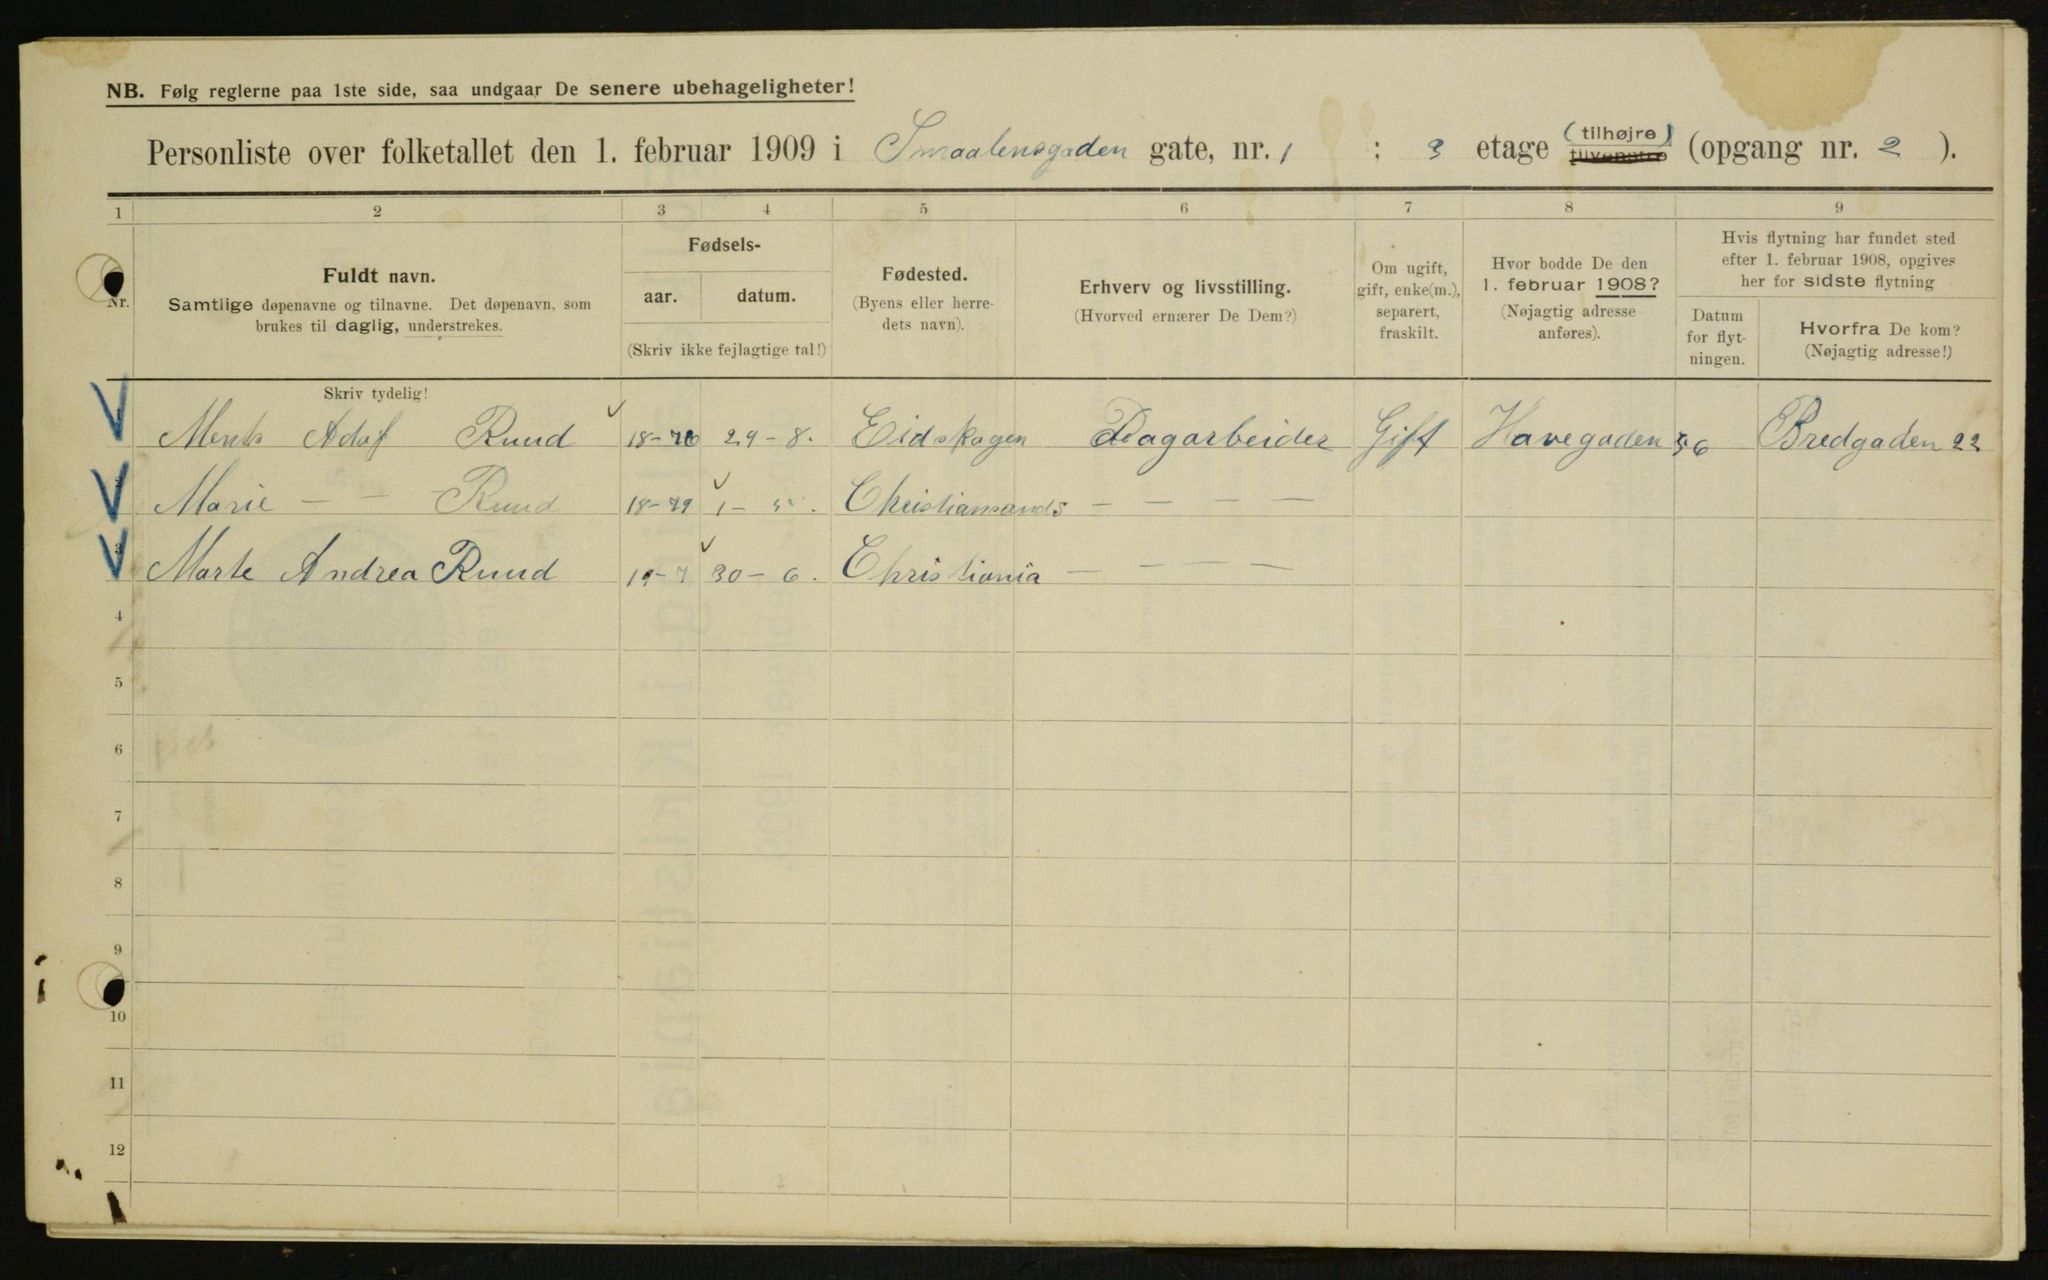 NB. Følg reglerne paa 1ste side, saa undgaar De senere ubehageligheter!
Personliste over folketallet den 1. februar 1909 i Smaalensgaden gate, nr. 1 : 3 etage (tilhøjre) tilvenstre (opgang nr. 2 ).
1 2 3 4 5 6 7 8 9
Nr.
Fuldt navn.
Samtlige døpenavne og tilnavne. Det døpenavn, som
brukes til daglig, understrekes.
Fødsels-
aar. datum.
(Skriv ikke fejlagtige tal!)
Fødested.
(Byens eller herre-
dets navn).
Erhverv og livsstilling.
(Hvorved ernærer De Dem?)
Om ugift,
gift, enke(m.),
separert,
fraskilt.
Hvor bodde De den
1. februar 1908?
(Nøjagtig adresse
anføres).
Hvis flytning har fundet sted
efter 1. februar 1908, opgives
her for sidste flytning
Datum
for flyt-
ningen.
Hvorfra De kom?
(Nøjagtig adresse!)
Skriv tydelig!
Ments Adof Ruud 18-76 29-8. Eidskogen Dagarbeider Gift Havegaden 56 Bredgaden 22
Marie — — Ruud 18-79 1-5. Christiansands — — — —
3 Marte Andrea Ruud 19-7 30-6. Christiania — — — —
4
5
6
7
8
9
10
11
12